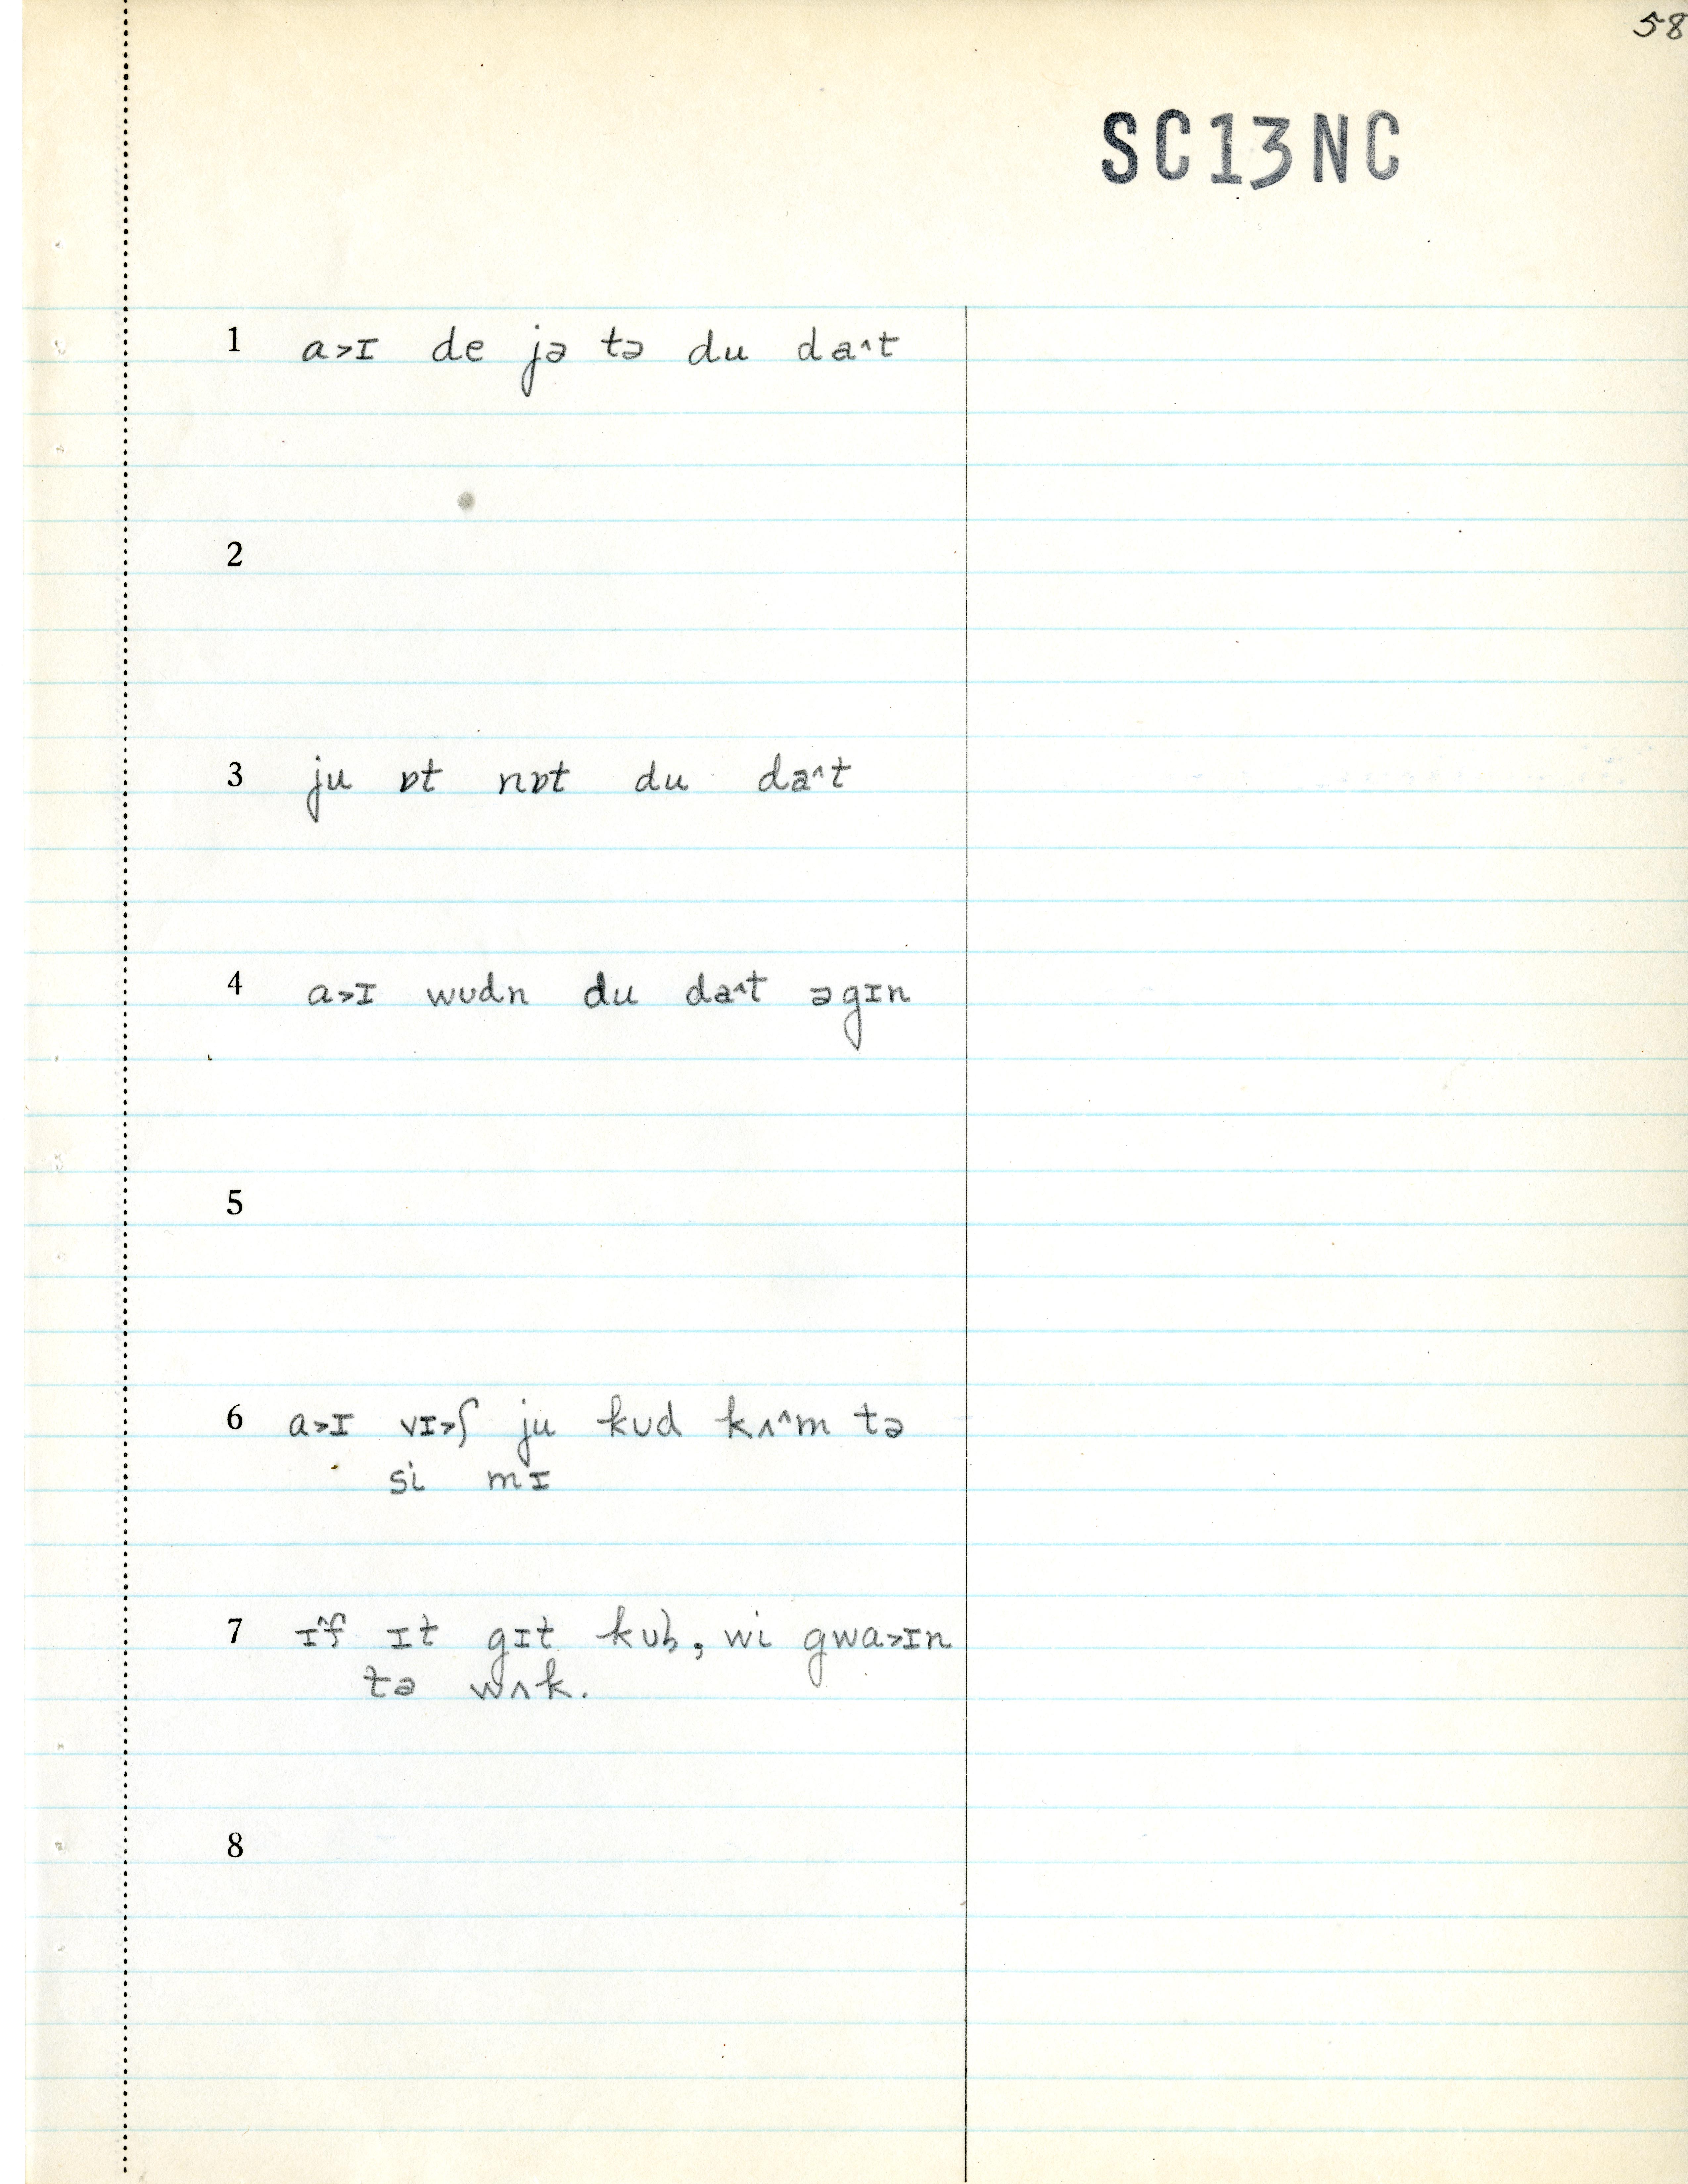 58
SC13NC
1 a˃ɪ de jə tə du da˄t
2
3 ju ɒt nɒt du da˄t
4 a˃ɪ wʊdn du da˄t əgɪn
5
6 a˃ɪ vɪ˃ʃ ju kʊd kʌ˄m tə
si mɪ
7 ɪ˄f ɪt gɪt kʊḅ, wi gwa˃ɪn
tə wʌk.
8